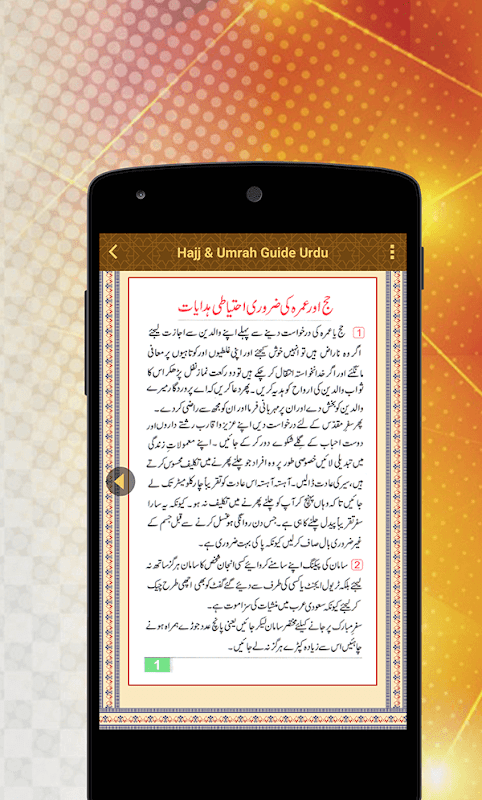 Hajj & Umrah Guide Urdu
حج اور عمرہ کی ضروری احتیاطی ہدایات
1 حج یا عمرہ کی درخواست دینے سے پہلے اپنے والدین سے اجازت لیجئے
اگر وہ ناراض ہیں تو انہیں خوش کیجئے اور اپنی غلطیوں اور کوتاہیوں پر معافی
مانگئے اور اگر خدانخواستہ انتقال کر چکے ہیں تو دو رکعت نماز نفل پڑھ کر اس کا
ثواب والدین کی ارواح کو ہدیہ کریں۔ پھر دعا کریں کہ اے پروردگار میرے
والدین کو بخش دے اور ان پر مہربانی فرما اور ان کو مجھ سے راضی کردے۔
پھر سفر مقدس کے لئے درخواست دیں اپنے عزیز واقارب رشتے داروں اور
دوست احباب کے گلے شکوے دور کر کے جائیں۔ اپنے معمولات زندگی
میں تبدیلی لائیں خصوصی طور پر وہ افراد جو چلنے پھرنے میں تکلیف محسوس کرتے
ہیں، سیر کی عادت ڈالیں۔ آہستہ آہستہ اس عادت کو تقریباً چار کلومیٹر تک لے
جائیں تاکہ وہاں پہنچ کر آپ کو چلنے پھرنے میں تکلیف نہ ہو۔ کیونکہ یہ سارا
سفر تقریباً پیدل چلنے کا ہی ہے۔ جس دن روانگی ہو غسل کرنے سے قبل جسم کے
غیر ضروری بال صاف کرلیں کیونکہ پاکی بہت ضروری ہے۔
2 سامان کی پیکنگ اپنے سامنے کروائیے کسی انجان شخص کا سامان ہرگز ساتھ نہ
لیجئے بلکہ ٹریول ایجنٹ یا کسی کی طرف سے دیئے گئے گفٹ کو بھی اچھی طرح چیک
کر لیجئے کیونکہ سعودی عرب میں منشیات کی سزا موت ہے۔
سفر مبارک پر جانے کیلئے مختصر سامان لیکر جائیں یعنی پانچ عدد جوڑے ہمراہ ہونے
چاہئیں اس سے زیادہ کپڑے ہرگز نہ لے جائیں۔
1